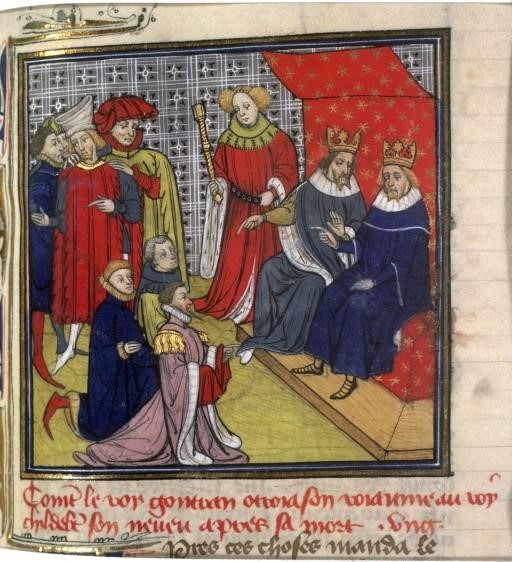 Comt le roy gontran ottroia son roiaume au roy
childebt son neveu apres sa mort . Ung
Pres ces choses manda le